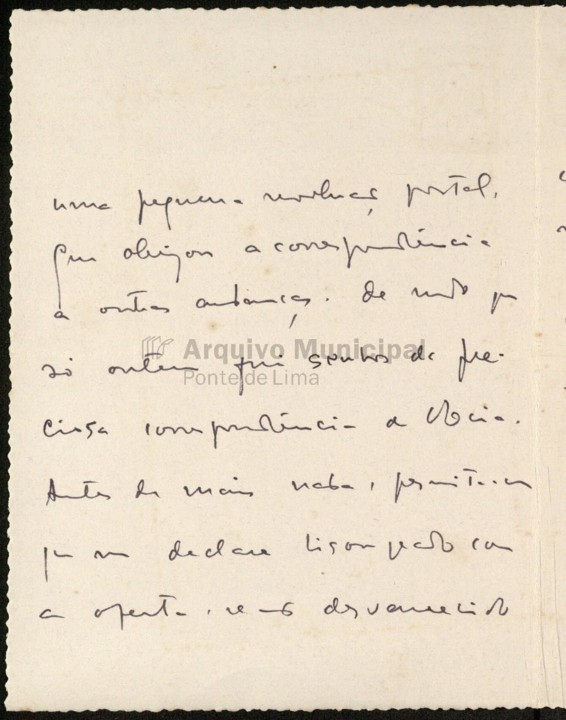 uma pequena revolução postal,
que obrigou a correspondência
a outras andanças. de modo que
só ontem fui senhor da pre-
Arquivo Municipal
Ponte de Lima
ciosa correspondência de V. Ex.cia.
Antes de mais nada, permita-me
que me declare lisongeado com
a oferta, desvanecido